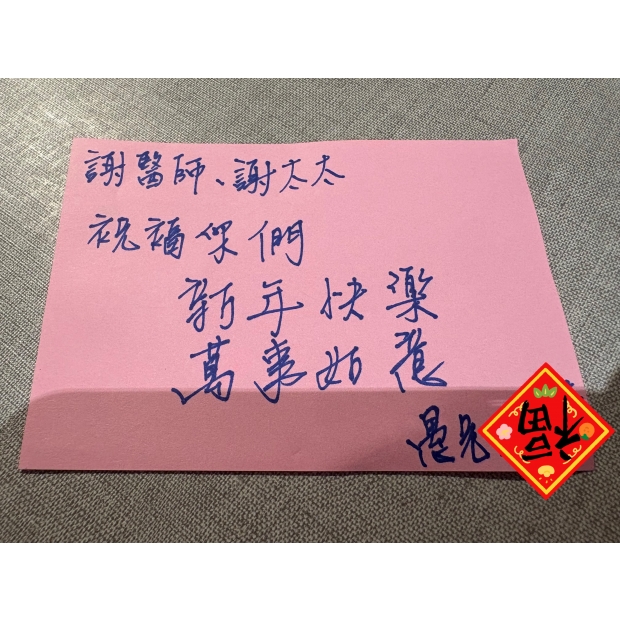 謝醫師、謝太太
祝福你們
新年快樂
萬事如意
愚兄
福